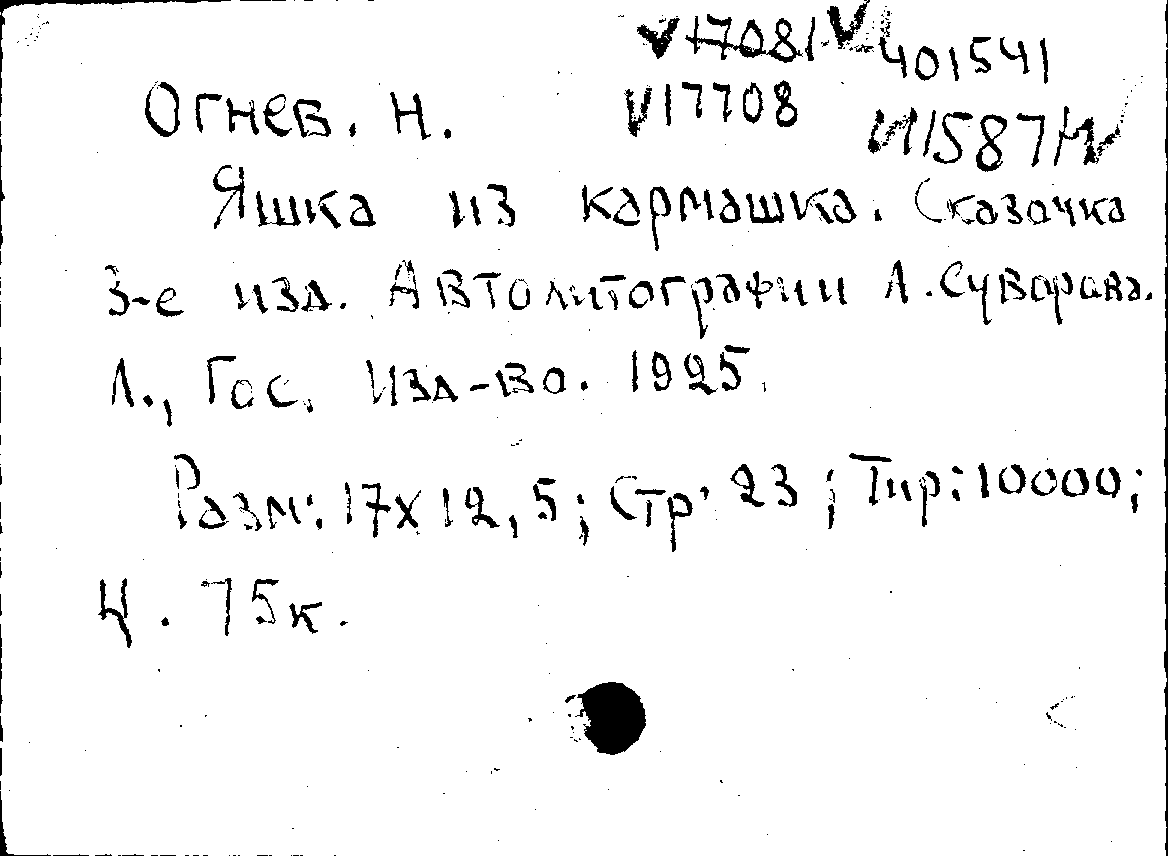 V17081 V 401541
Огнев. Н. V17708
И1587
Яшка из кармашка. Сказочка
3-е изд. Автолитографии А. Суворова.
Л., Гос. Изд-во. 1925.
Разм: 17х12,5; Стр. 23; Тир: 10000;
Ц. 75к.